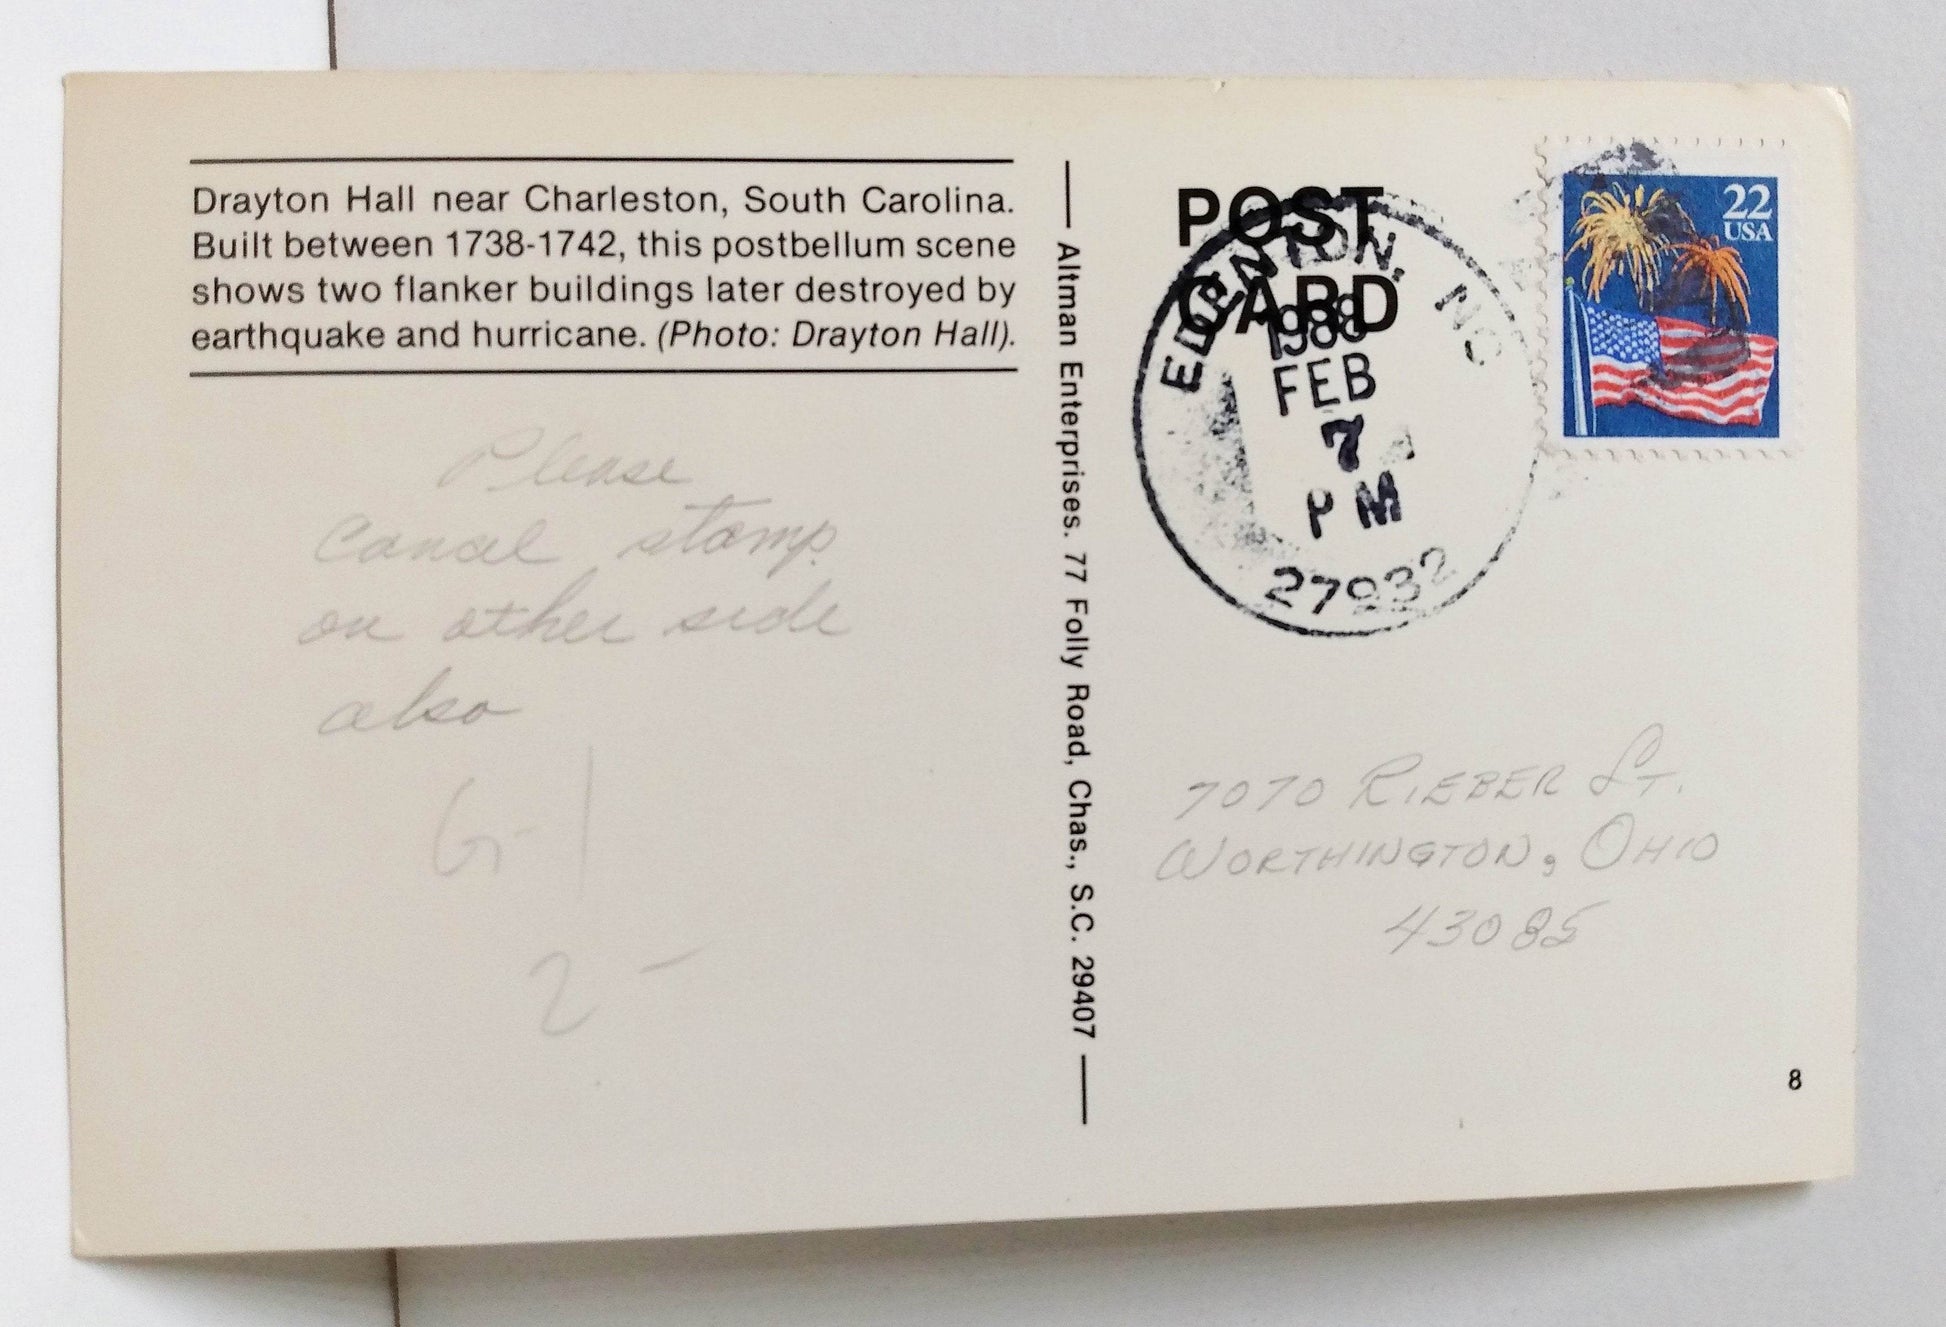 Drayton Hall near Charleston, South Carolina.
Built between 1738-1742, this postbellum scene
shows two flanker buildings later destroyed by
earthquake and hurricane. (Photo: Drayton Hall).
Please
Cancel stamp
on other side
also
G-1
2-
Altman Enterprises. 77 Folly Road, Chas., S.C. 29407
POST
CARD
EDENTON, NC
1988
FEB
7
PM
27932
22
USA
7070 RIEBER ST.
WORTHINGTON, OHIO
43085
8